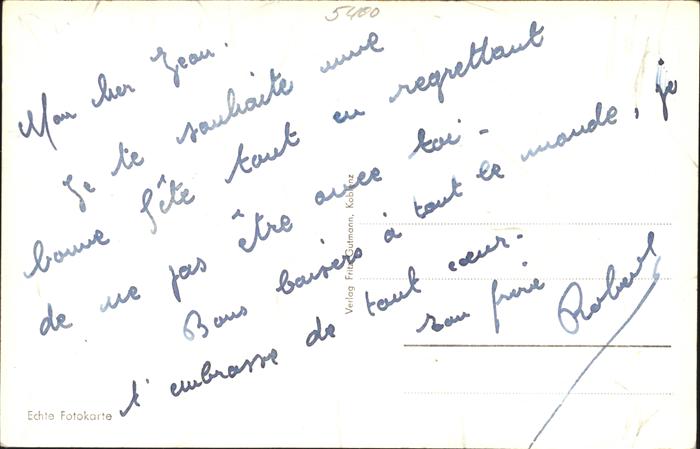 5400
Mon cher Jean.
Je te souhaite une
bonne fête tout en regrettant
de ne pas être avec toi -
Bons baisers à tout le monde, je
t'embrasse de tout cœur.
ton frère
Robert
Verlag Fritz Gutmann, Koblenz
Echte Fotokarte